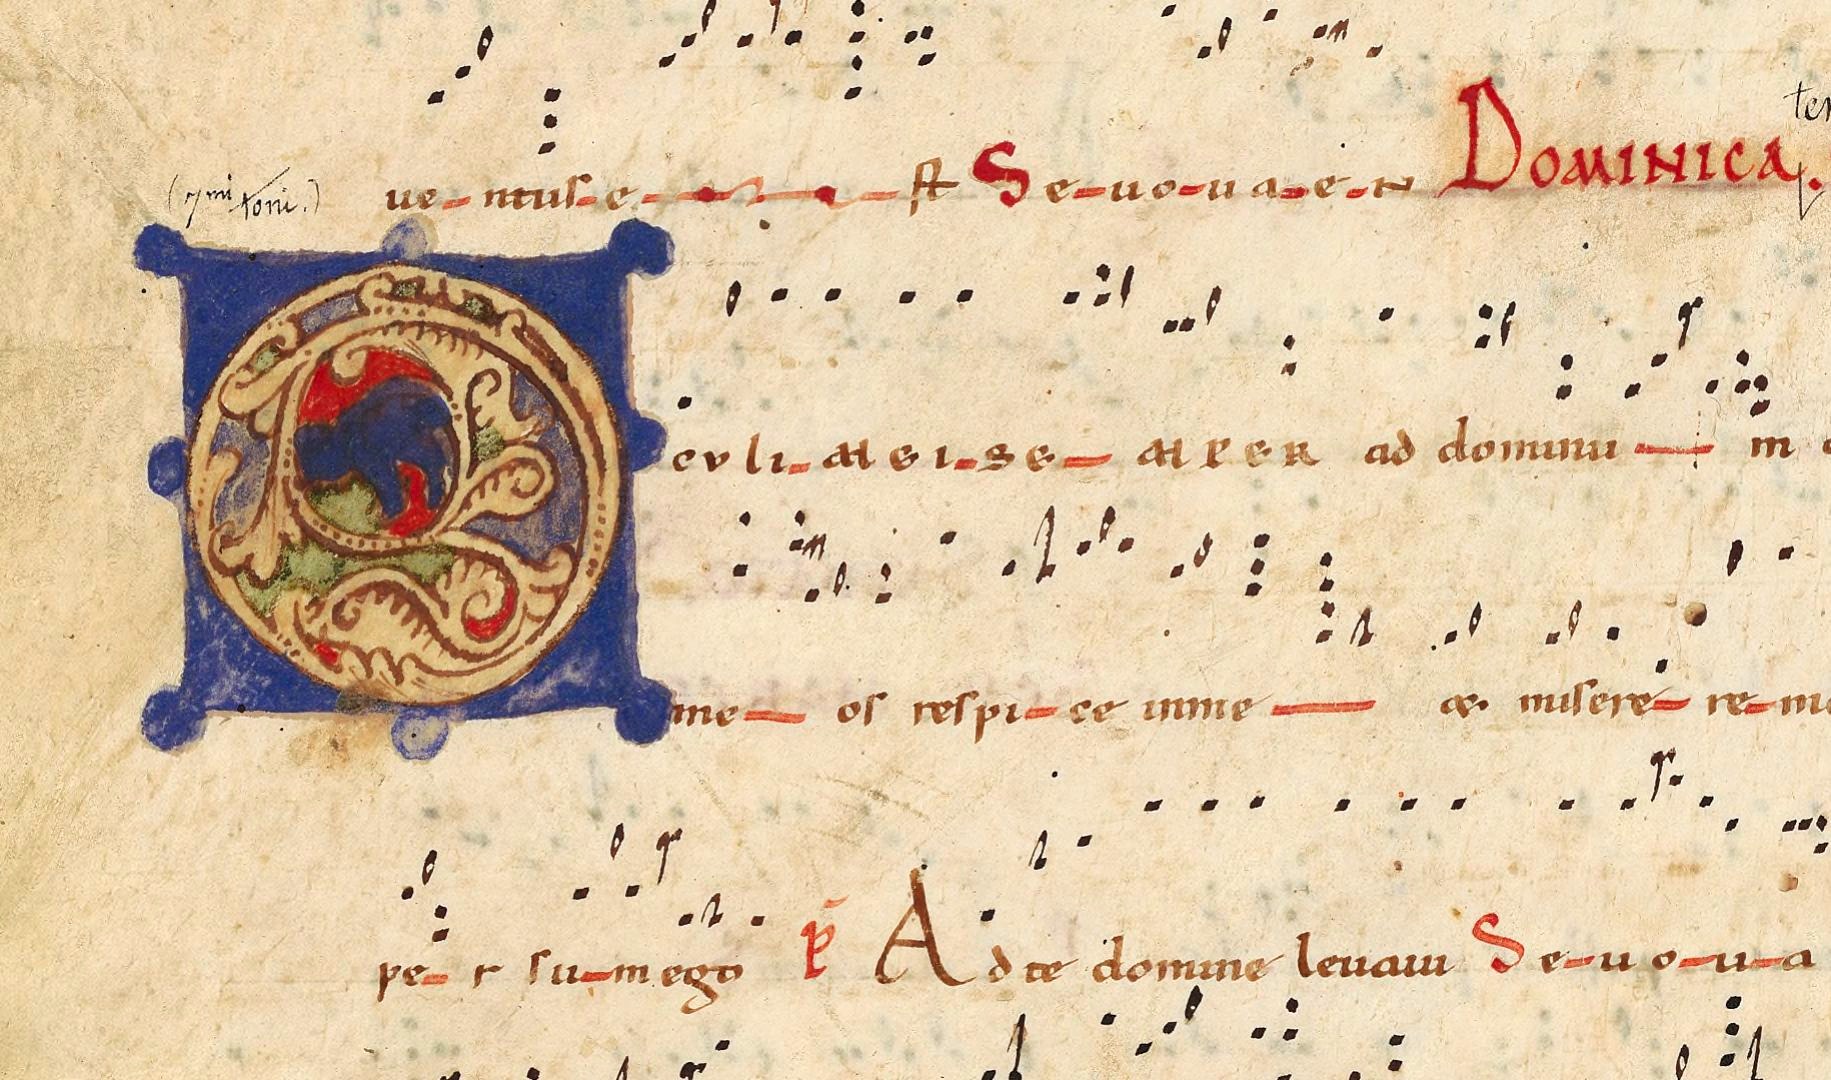 ue-ntus-e-st Se-uo-ua-e- DOMINICA.
(7mi toni.)
Oculi-mei-se-mper ad dominu-m
me-os respi-ce inme- & misere-re-
pe-r su-m ego P̄ Ad te domine leuaui Se-uo-u-a